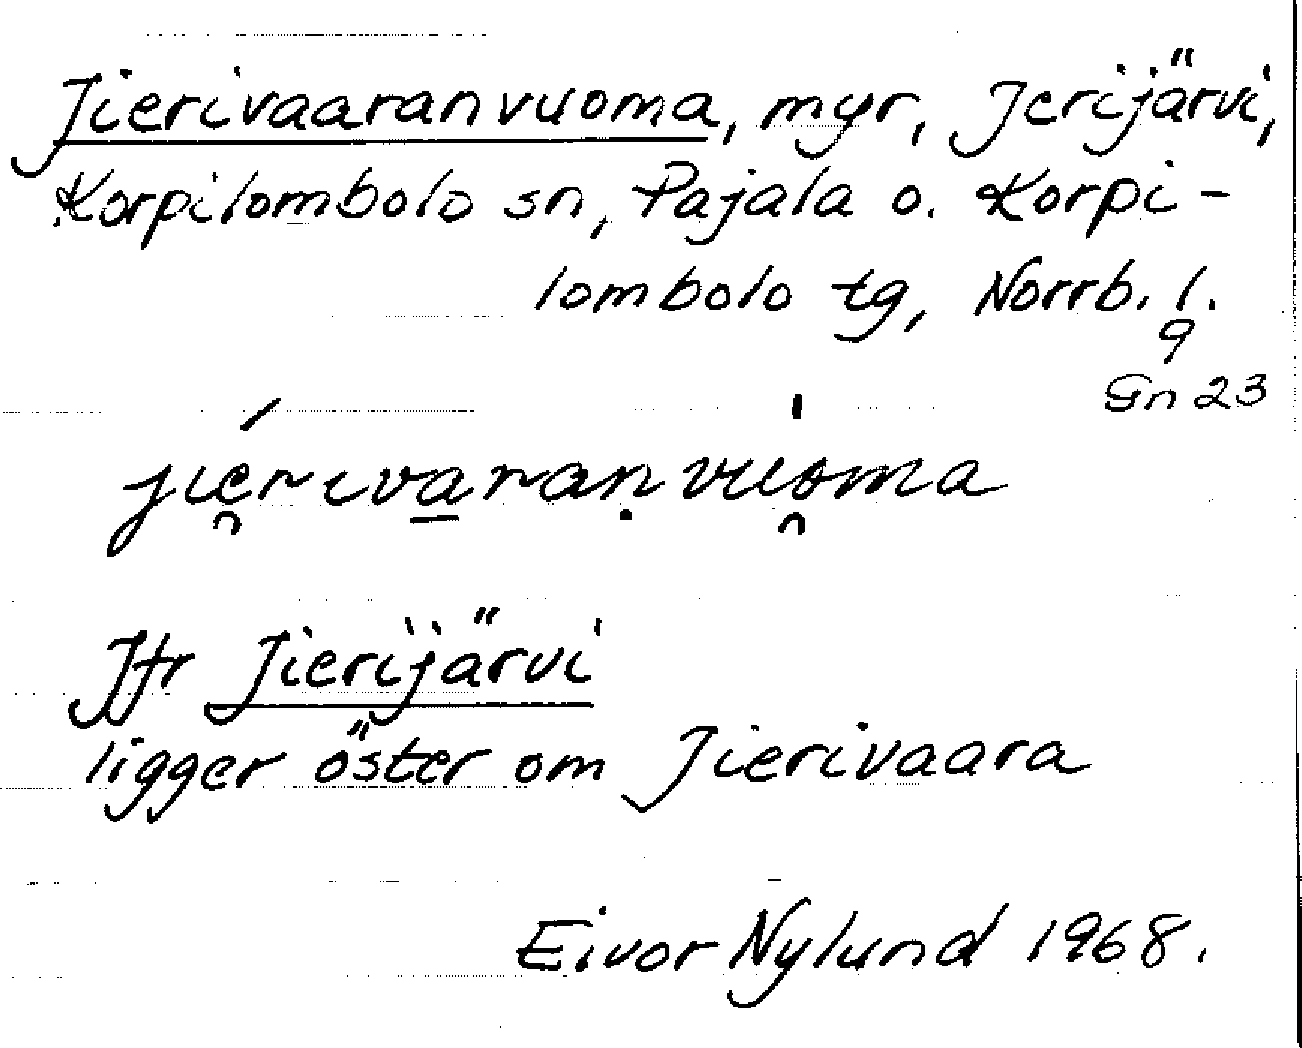 Jierivaaranvuoma, myr, Jerijärvi,
Korpilombolo sn, Pajala o. Korpi-
lombolo tg, Norrb. l.
9
Gn 23
jie̯riva̱raṇvuo̯ma
Jfr Jierijärvi
ligger öster om Jierivaara
Eivor Nylund 1968.